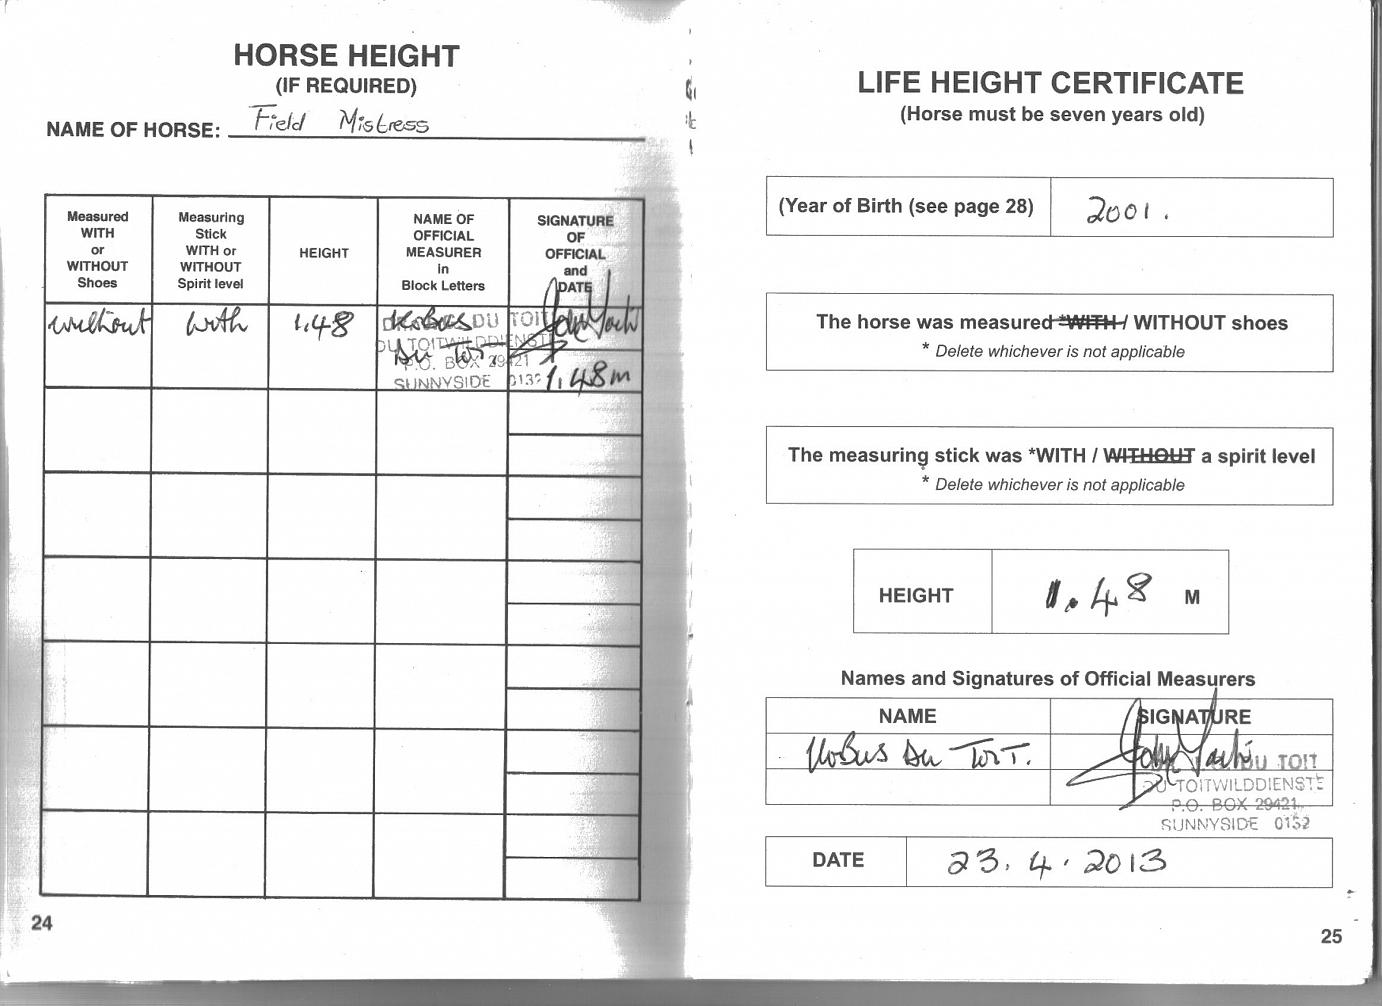 HORSE HEIGHT
(IF REQUIRED)
NAME OF HORSE: Field Mistress
Measured WITH or WITHOUT Shoes
Measuring Stick WITH or WITHOUT Spirit level
HEIGHT
NAME OF OFFICIAL MEASURER in Block Letters
SIGNATURE OF OFFICIAL and DATE
without with 1.48 Kobus
Du Toit
DU TOIT
DU TOITWILDDIENSTE
P.O. BOX 29421
SUNNYSIDE 0132
1.48m
24
LIFE HEIGHT CERTIFICATE
(Horse must be seven years old)
(Year of Birth (see page 28) 2001.
The horse was measured *WITH / WITHOUT shoes
* Delete whichever is not applicable
The measuring stick was *WITH / WITHOUT a spirit level
* Delete whichever is not applicable
HEIGHT 1.48 M
Names and Signatures of Official Measurers
NAME SIGNATURE
Kobus Du Toit.
DU TOIT
DU TOITWILDDIENSTE
P.O. BOX 29421
SUNNYSIDE 0132
DATE 23.4.2013
25